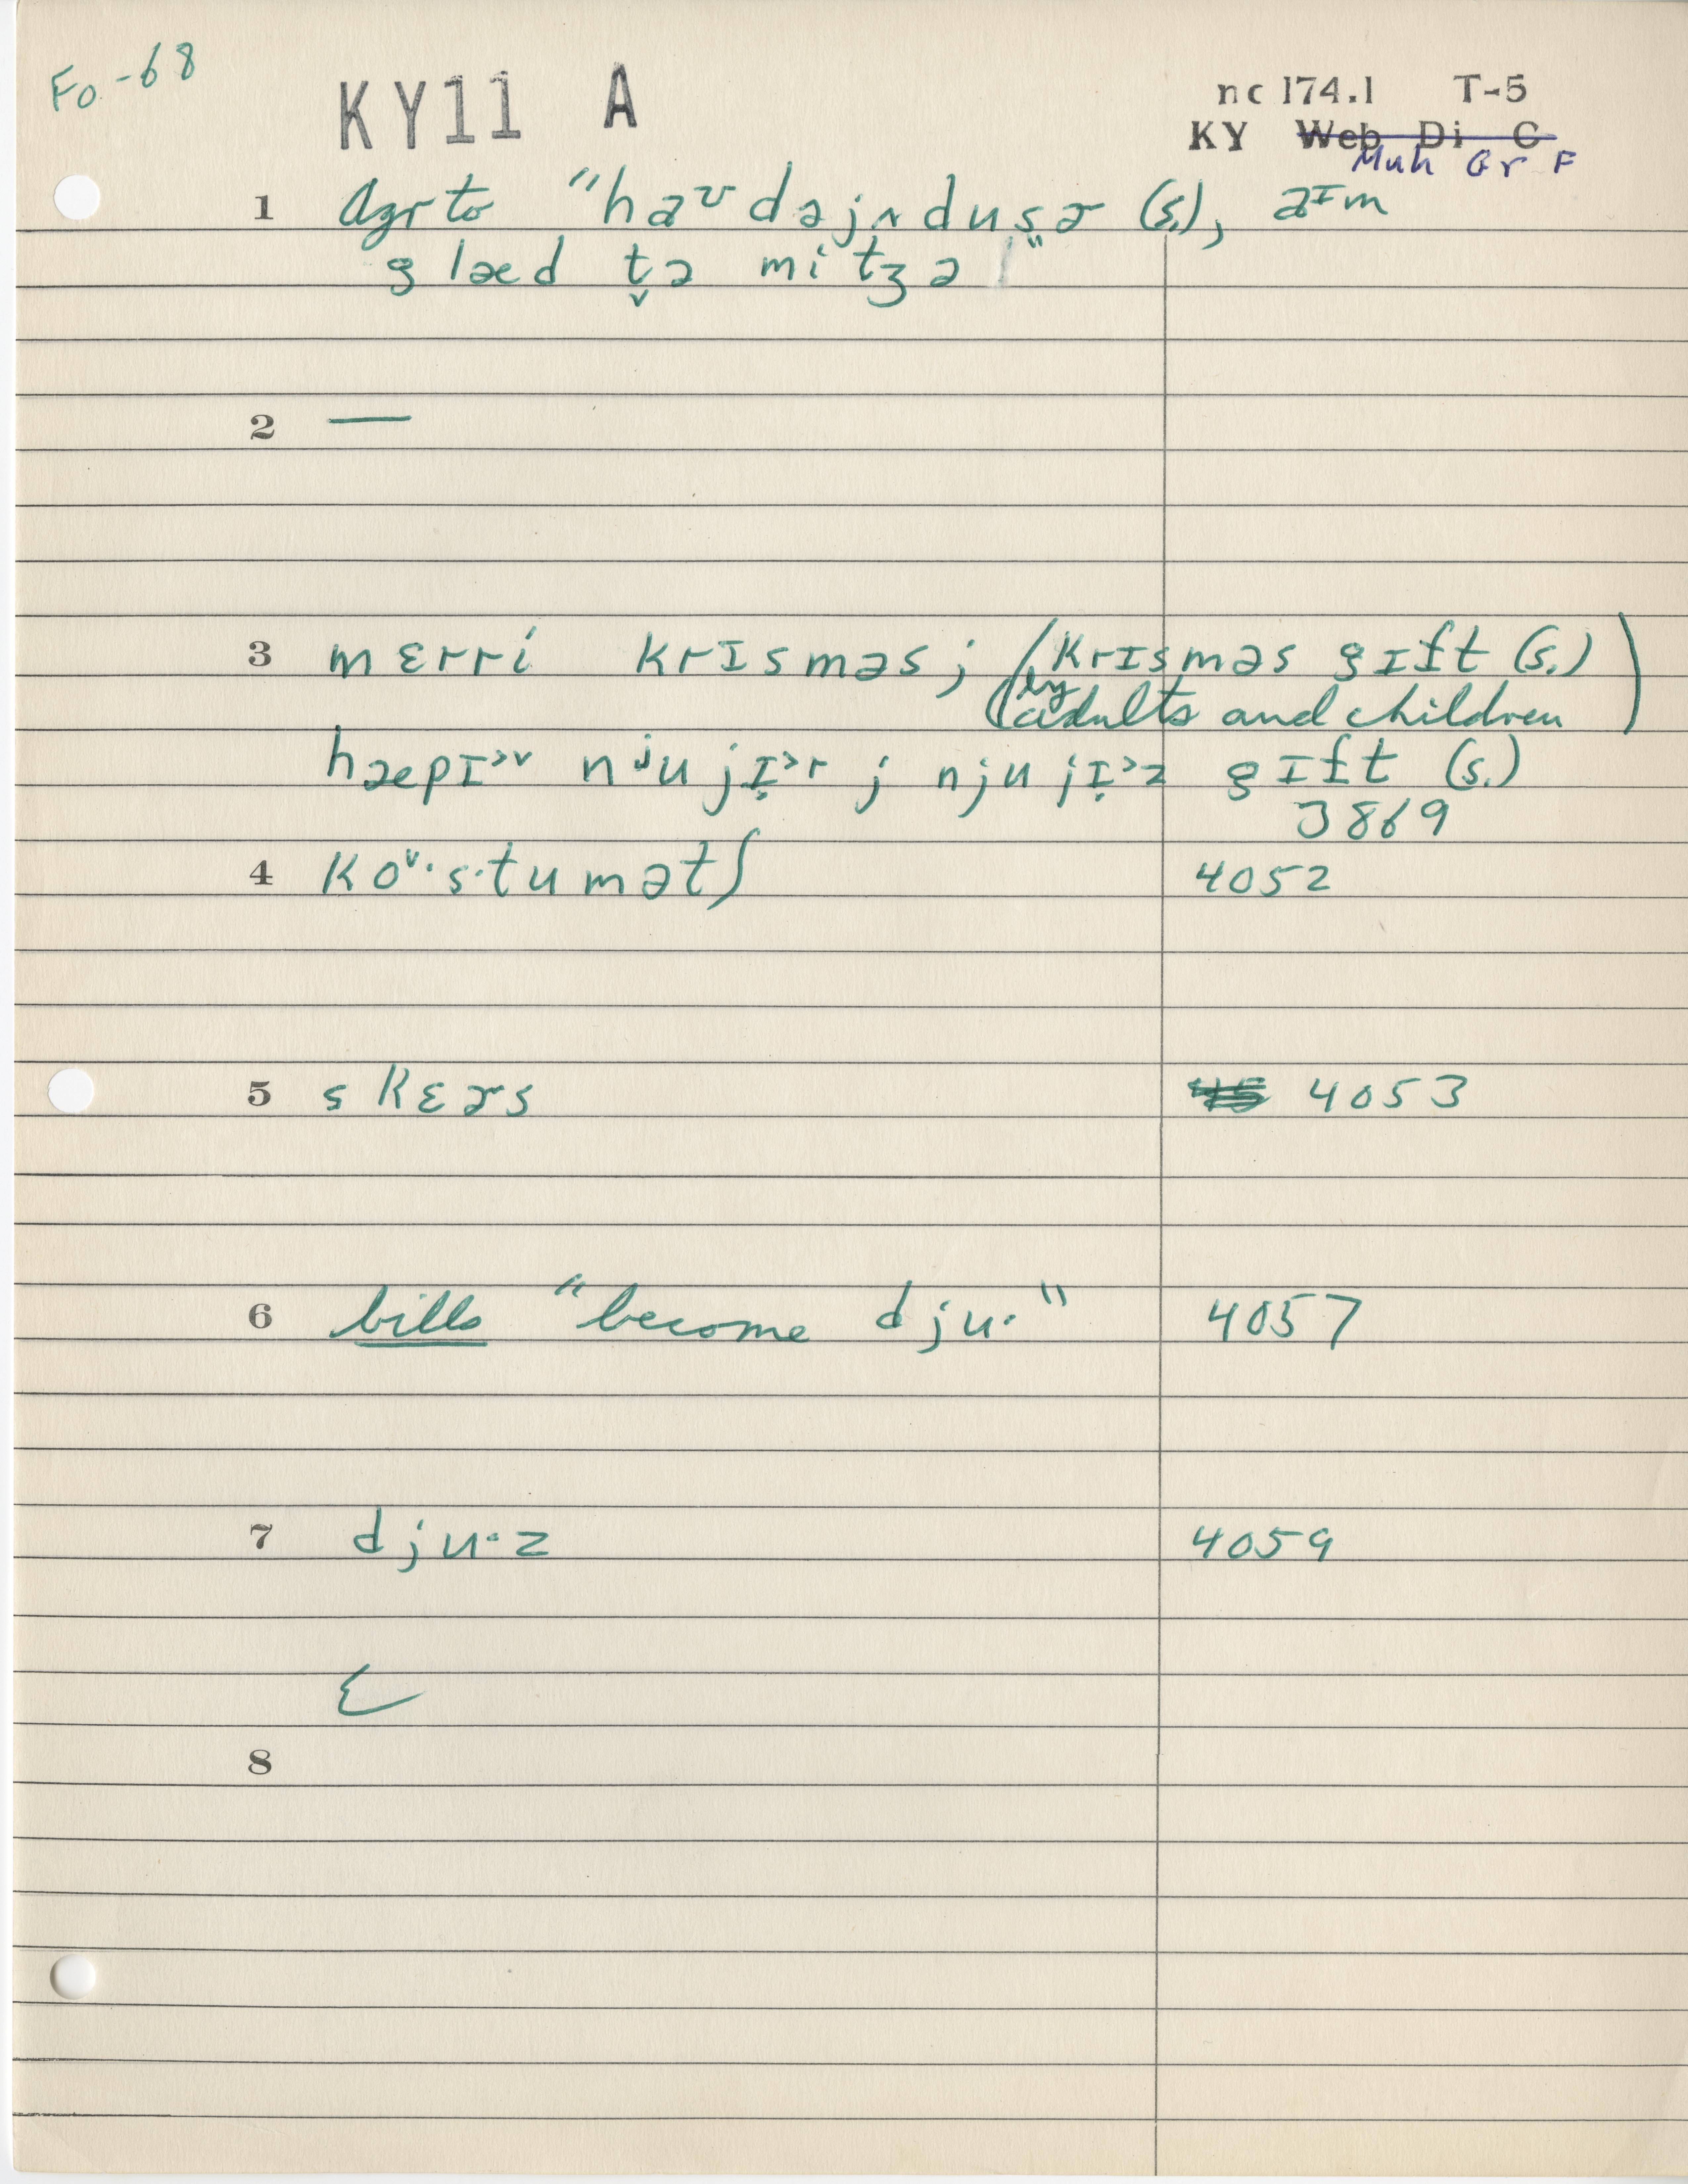 Fo-68
KY11 A
nc 174.1 T-5
KY Web Di C
Muh Gr F
1 "haʊdəjʌdusɚ (s.), aɪm
glæd t̬ə mitʒə"
2 —
3 mɛrri krɪsməs; (krɪsməs gɪft (s.)
by adults and children)
hæpɪ˃˅ nʲujɪ̣˃r; njujɪ̣˃z gɪft (s.)
3869
4 ko˅·s·tumətʃ 4052
5 skɛɚs 4053
6 bills "become dju·" 4057
7 dju·z 4059
8